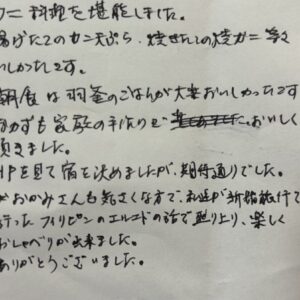 カニ料理を堪能しました。
揚げたてのカニ天ぷら、焼きたての焼ガニ等々
いしかったです。
朝食は羽釜のごはんが大変おいしかったです
おかずも家族の手作りで おいしく
頂きました。
HPを見て宿を決めましたが、期待通りでした。
がおかみさんも気さくな方で、私達が新婚旅行で
行ったフィリピンのエルニドの話で盛り上り、楽しく
おしゃべりが出来ました。
ありがとうございました。